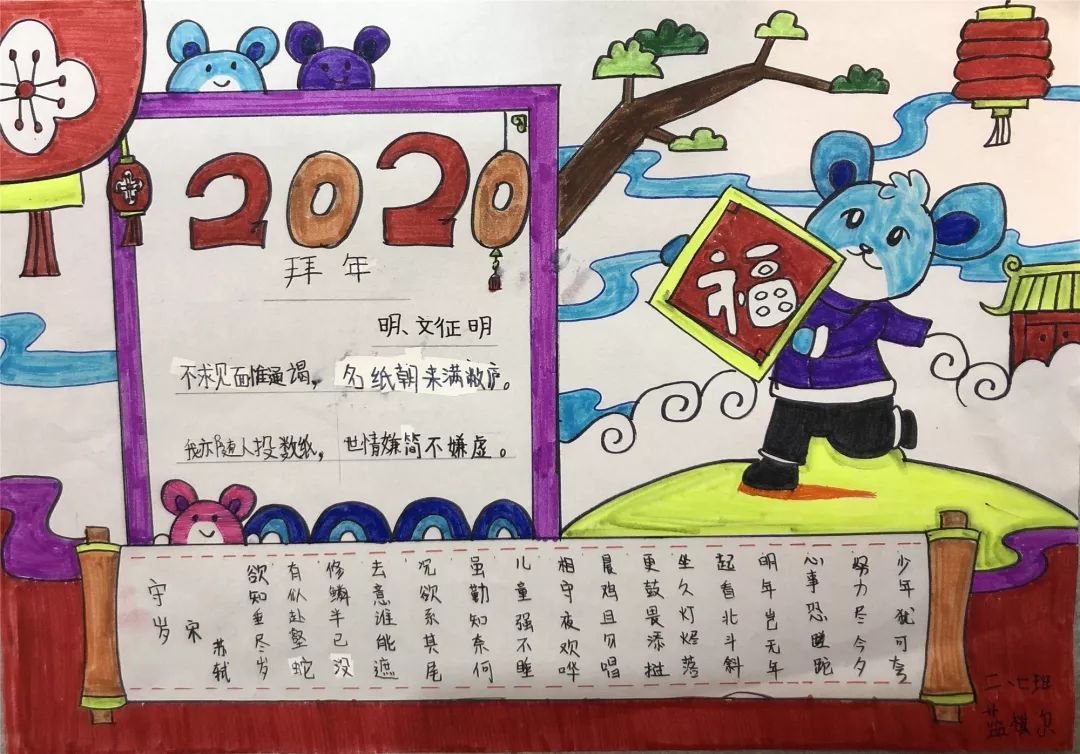 2020
拜年
明、文征明
不求见面惟通谒，名纸朝来满敝庐。
我亦随人投数纸，世情嫌简不嫌虚。
福
守岁
宋 苏轼
欲知垂尽岁
有似赴壑蛇
修鳞半已没
去意谁能遮
况欲系其尾
虽勤知奈何
儿童强不睡
相守夜欢哗
晨鸡且勿唱
更鼓畏添挝
坐久灯烬落
起看北斗斜
明年岂无年
心事恐蹉跎
努力尽今夕
少年犹可夸
二、七班